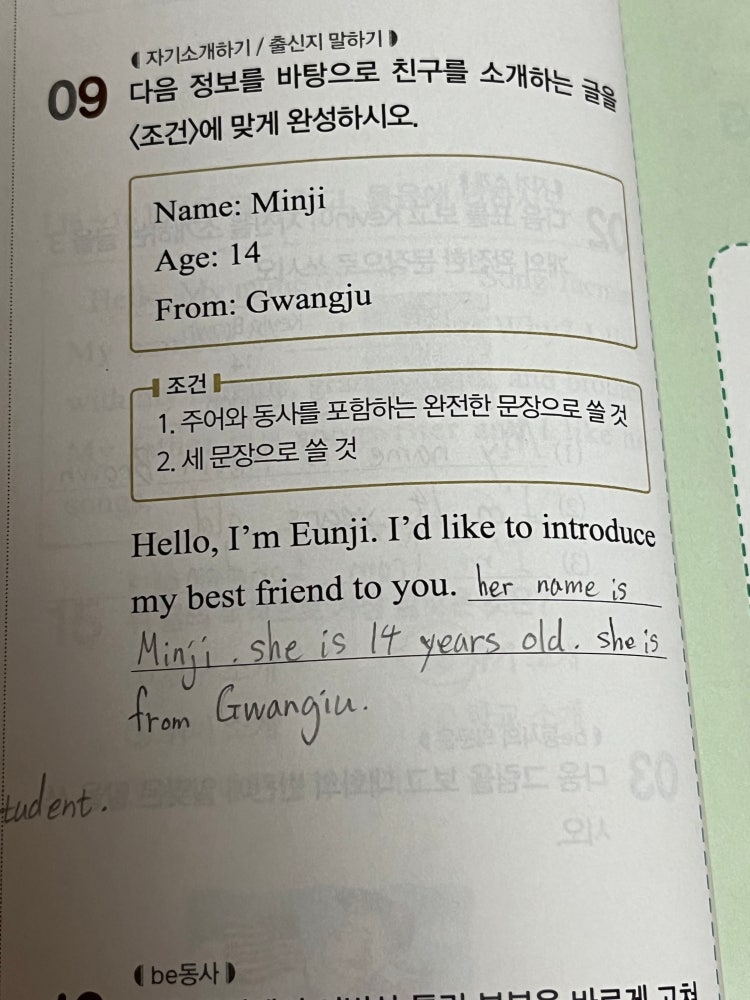 ◖자기소개하기 / 출신지 말하기◗
09 다음 정보를 바탕으로 친구를 소개하는 글을
〈조건〉에 맞게 완성하시오.
Name: Minji
Age: 14
From: Gwangju
조건
1. 주어와 동사를 포함하는 완전한 문장으로 쓸 것
2. 세 문장으로 쓸 것
Hello, I'm Eunji. I'd like to introduce
my best friend to you. her name is
Minji. she is 14 years old. she is
from Gwangju.
tudent.
◖be동사◗